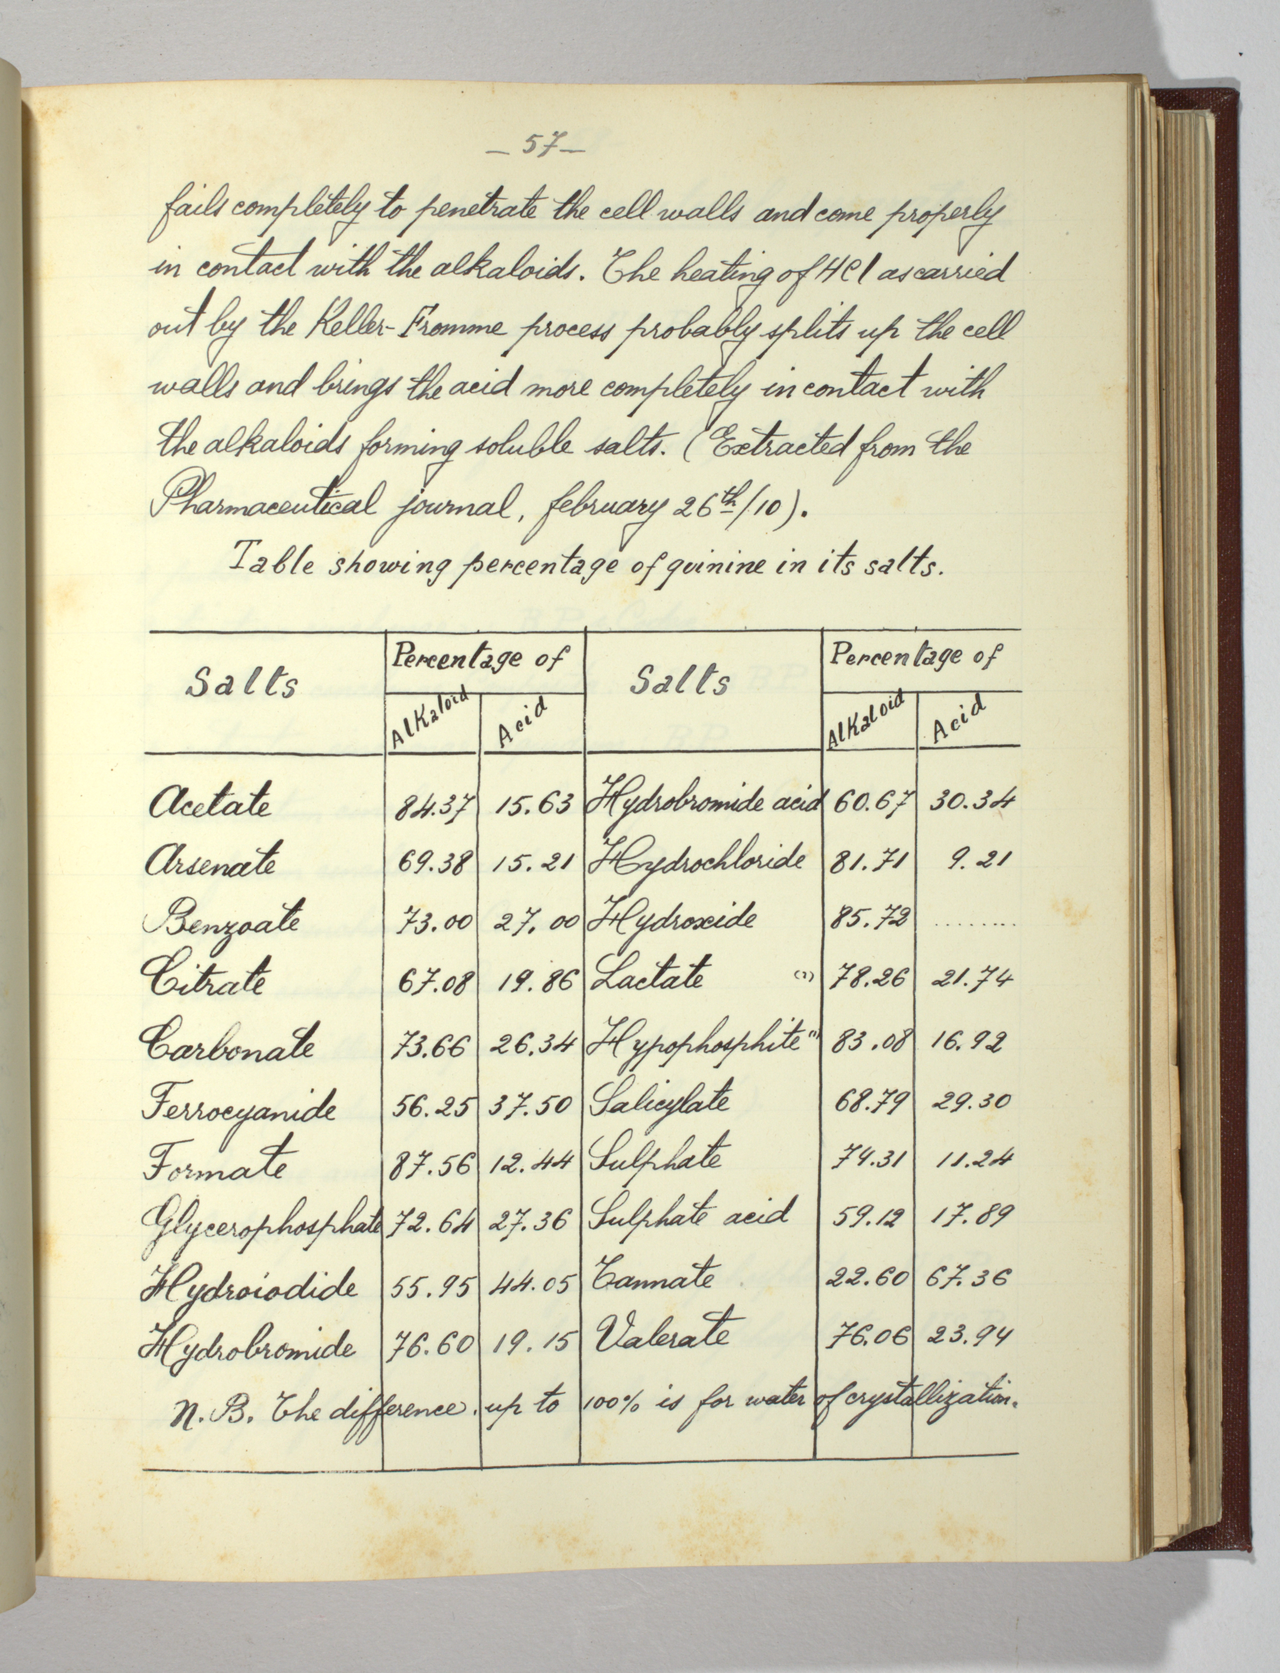 — 57 —
fails completely to penetrate the cell walls and come properly
in contact with the alkaloids. The heating of HCl as carried
out by the Keller-Fromme process probably splits up the cell
walls and brings the acid more completely in contact with
the alkaloids forming soluble salts. (Extracted from the
Pharmaceutical journal, february 26th/10).
Table showing percentage of quinine in its salts.
Salts Percentage of Salts Percentage of
Alkaloid Acid Alkaloid Acid
Acetate 84.37 15.63 Hydrobromide acid 60.67 30.34
Arsenate 69.38 15.21 Hydrochloride 81.71 9.21
Benzoate 73.00 27.00 Hydroxide 85.72 ........
Citrate 67.08 19.86 Lactate (1) 78.26 21.74
Carbonate 73.66 26.34 Hypophosphite (1) 83.08 16.92
Ferrocyanide 56.25 37.50 Salicylate 68.79 29.30
Formate 87.56 12.44 Sulphate 74.31 11.24
Glycerophosphate 72.64 27.36 Sulphate acid 59.12 17.89
Hydroiodide 55.95 44.05 Tannate 22.60 67.36
Hydrobromide 76.60 19.15 Valerate 76.06 23.94
N.B. The difference up to 100% is for water of crystallization.